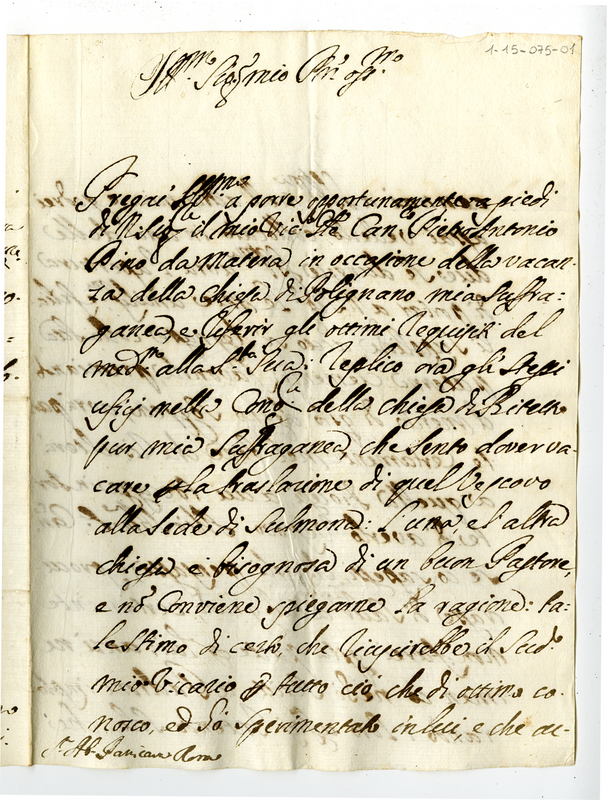 1-15-075-01
Ill.mo Sig.r mio P.ron oss.mo
Pregai a porre opportunamente a piedi
di N. Sig.re il mio Vic.o Gñle Can.co Pietrantonio
Pino da Matera in occasione della vacan-
za della chiesa di Polignano mia suffra-
ganea, e riferir gli ottimi requisiti del
med.mo alla S.tà Sua: replico ora gli stessi
ufizj nella cong.le della chiesa di Bitetto
pur mia suffraganea, che sento dover va-
care p la traslazione di quel Vescovo
alla sede di Sulmona: l'una e l'altra
chiesa è bisognosa di un buon Pastore,
e nō conviene spiegarne la ragione: ta-
le stimo di certo, che riuscirebbe il Sud.o
mio Vicario p tutto ciò, che di ottimo co-
nosco, ed hò sperimentato in lui, e che ac-
S.r Ab. Roma